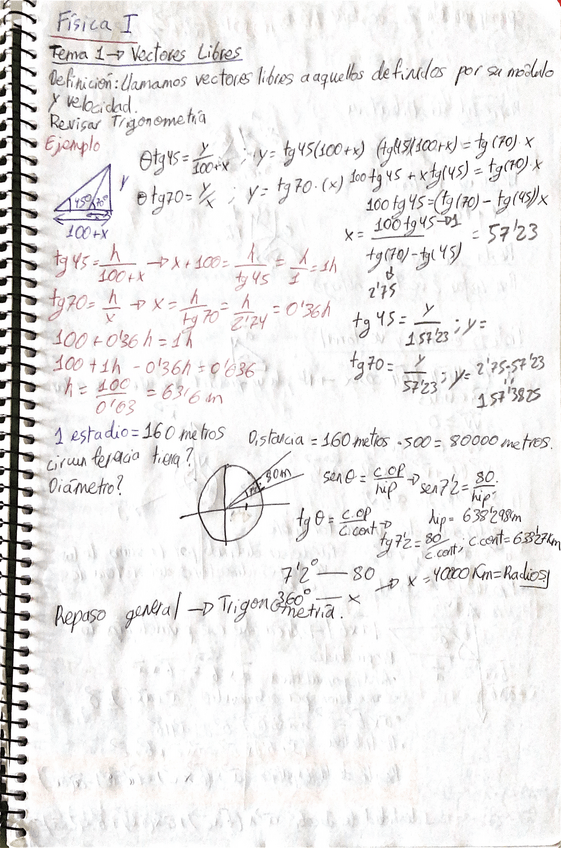 Física I
Tema 1 → Vectores Libres
Definición: Llamamos vectores libres a aquellos definidos por su módulo
y velocidad.
Revisar Trigonometría
Ejemplo
θ tg45 = y/100+x ; y = tg45(100+x)
θ tg70 = y/x ; y = tg70·(x)
(tg45)(100+x) = tg(70)·x
100tg45 + x tg(45) = tg(70)·x
100tg45 = (tg(70) - tg(45))x
x = 100tg45→1 / tg(70) - tg(45) = 57'23
2'75
45º 70º y
100+x
tg45 = h/100+x → x+100 = h/tg45 = h/1 = 1h
tg70 = h/x → x = h/tg70 = h/2'74 = 0'36h
100 + 0'36h = 1h
100 + 1h - 0'36h = 0'636
h = 100/0'63 = 63'6 m
tg 45 = y/157'23 ; y =
tg70 = y/57'23 ; y = 2'75·57'23
157'3825
1 estadio = 160 metros
Distancia = 160 metros · 500 = 80000 metros.
circunferacia tierra?
Diámetro?
80m
sen θ = c.op/hip → sen7'2 = 80/hip
hip = 638'298km
tg θ = c.op/c.cont →
tg7'2 = 80/c.cont ; c cont = 633'27km
7'2º — 80
360º — x
→ x = 4000 Km = Radios
Repaso general → Trigonometría.